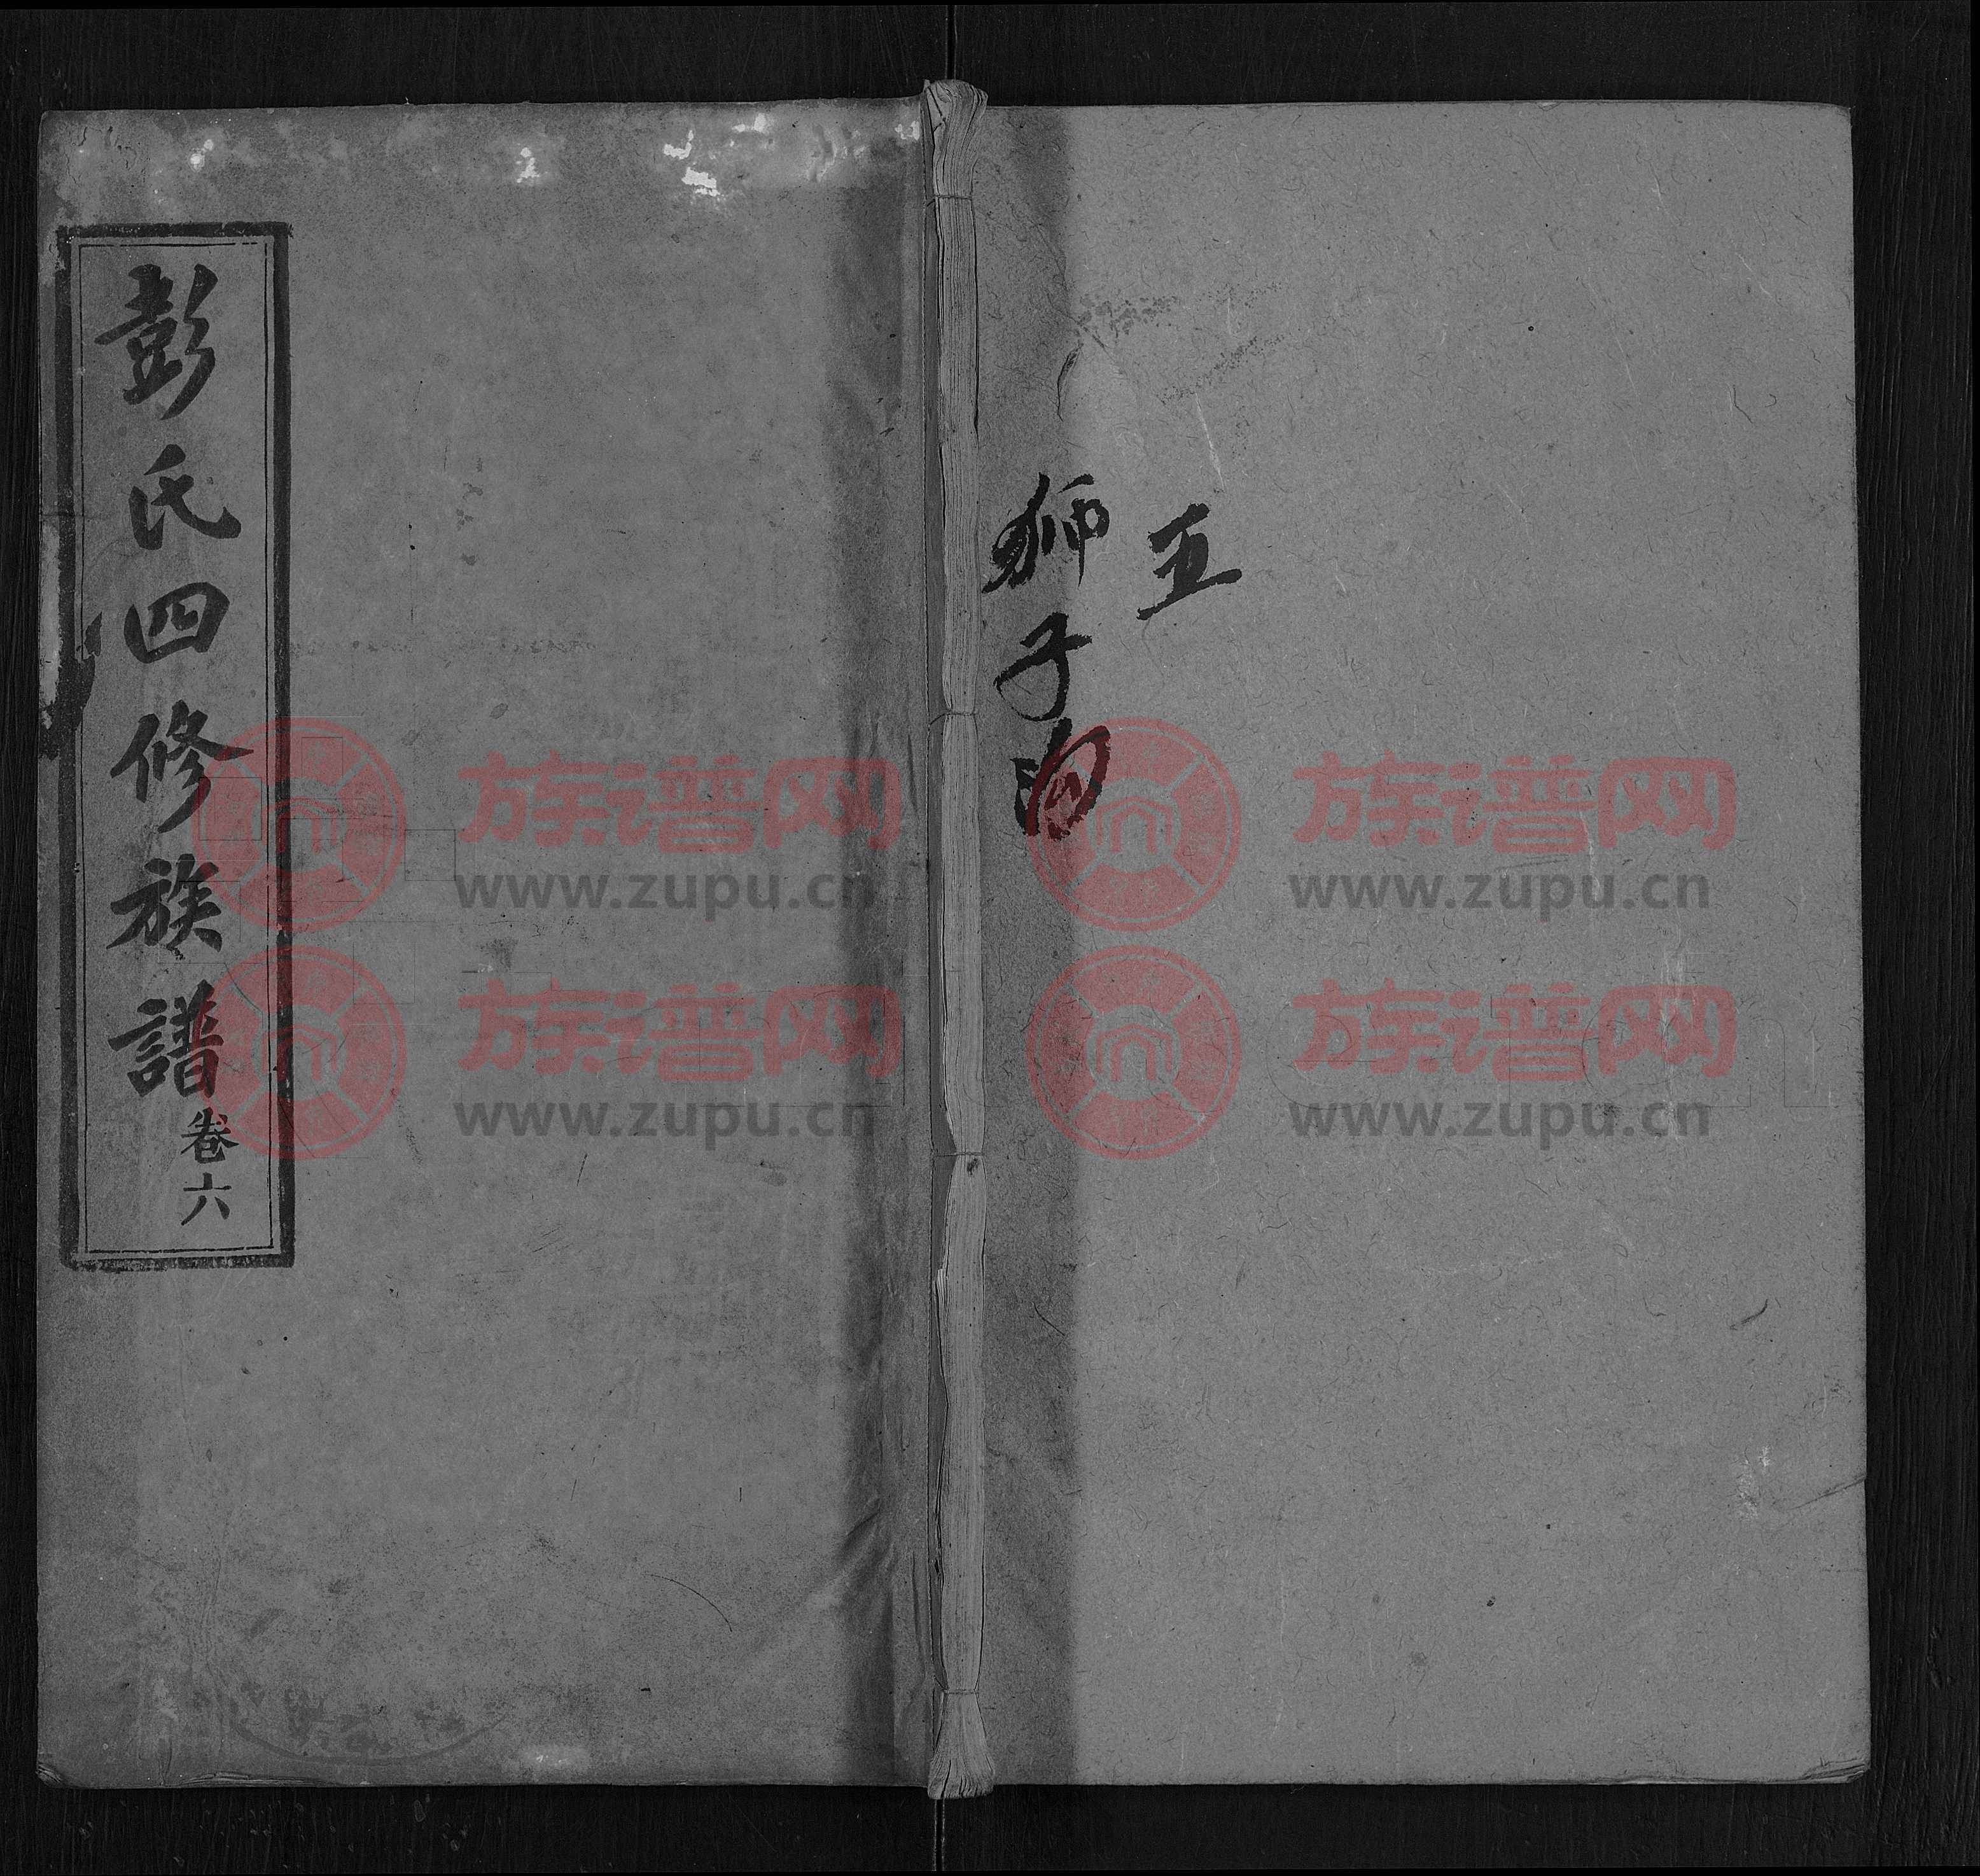 五
狮子沟
彭氏四修族譜卷六
族谱网
www.zupu.cn
族谱网
www.zupu.cn
族谱网
www.zupu.cn
族谱网
www.zupu.cn